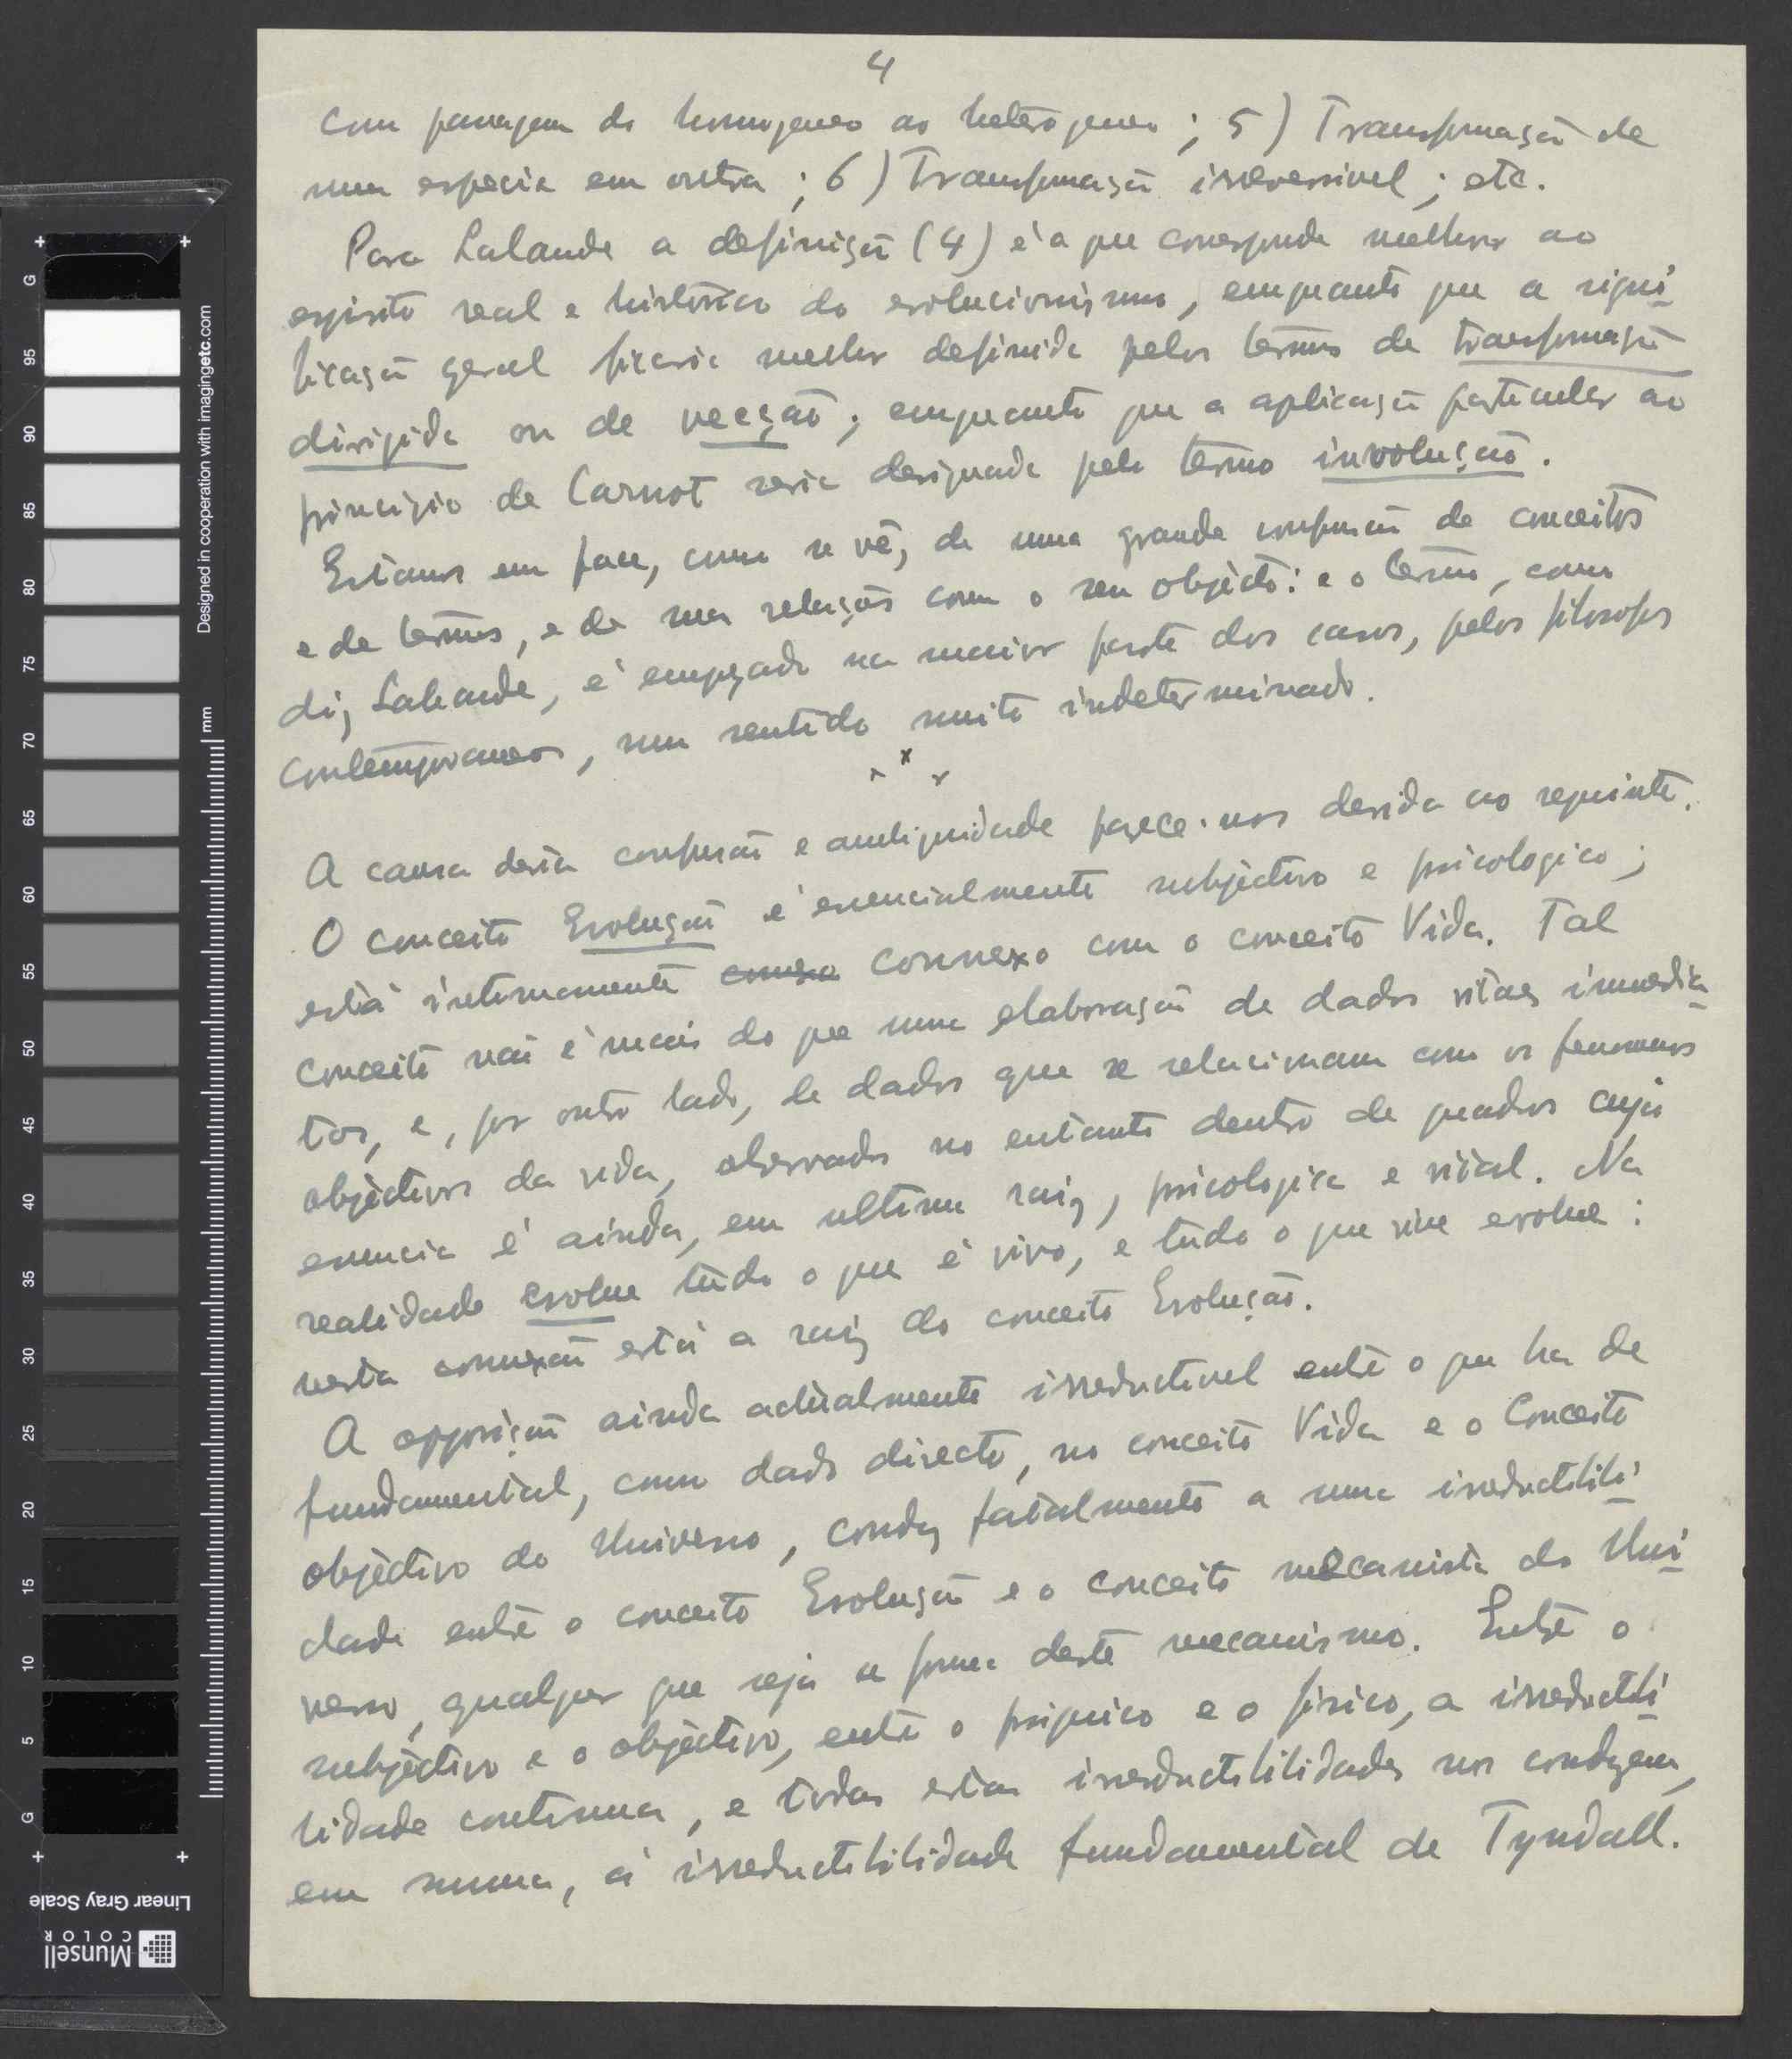 4
com passagem do homogeneo ao heterogeneo ; 5) Transformação de
uma especie em outra ; 6) Transformação irreversivel ; etc.
Para Lalande a definição (4) é a que corresponde melhor ao
espirito real e historico do evolucionismo, emquanto que a signi-
ficação geral ficaria melhor definida pelos termos de transformação
dirigida ou de vecção ; emquanto que a aplicação particular ao
principio de Carnot seria designada pelo termo involução.
Estamos em face, como se vê, de uma grande confusão de conceitos
e de termos, e da sua relação com o seu objècto: e o termo, como
diz Lalande, é empregado na maior parte dos casos, pelos filosofos
contemporaneos, num sentido muito indeterminado.
x x x
A causa desta confusão e ambiguidade parece-nos devida ao seguinte.
O conceito Evolução é essencialmente subjèctivo e psicologico ;
está intimamente conexo connexo com o conceito Vida. Tal
conceito não é mais do que uma elaboração de dados vitaes immedia-
tos, e, por outro lado, de dados que se relacionam com os fenomenos
objèctivos da vida, observados no entanto dentro de quadros cuja
essencia é ainda, em ultima raiz, psicologica e vital. Na
realidade evolue tudo o que é vivo, e tudo o que vive evolue :
nesta connexão está a raiz do conceito Evolução.
A opposição ainda actualmente irreductivel entre o que ha de
fundamental, como dado directo, no conceito Vida e o Conceito
objèctivo do Universo, conduz fatalmente a uma irreductibili-
dade entre o conceito Evolução e o conceito mecanista do Uni-
verso, qualquer que seja a forma deste mecanismo. Entre o
subjèctivo e o objèctivo, entre o psiquico e o fisico, a irreductibi-
lidade continua, e todas estas irreductibilidades nos conduzem,
em summa, á irreductibilidade fundamental de Tyndall.
G
95
90
85
80
75
70
65
60
55
50
45
40
35
30
25
20
15
10
5
G
Designed in cooperation with imagingetc.com
mm
Linear Gray Scale
Munsell
COLOR